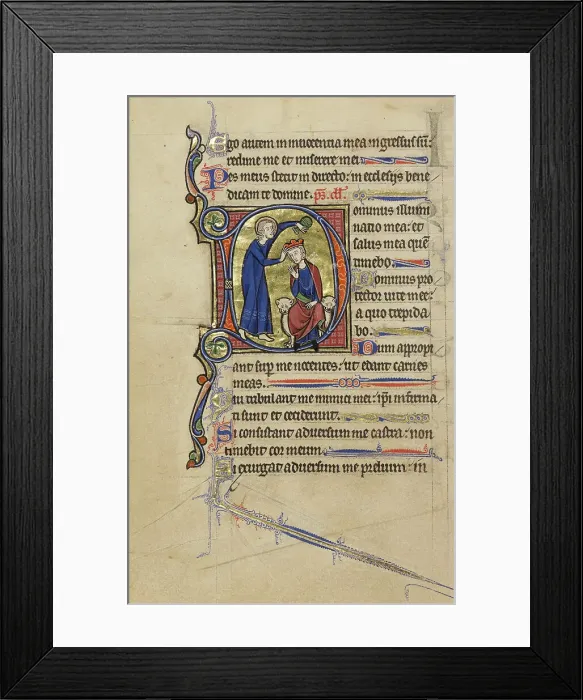 Ego autem in innocentia mea ingressus sū:
redime me et miserere mei
Pes meus stetit in directo: in ecclesijs bene
dicam te domine. ps.
Dominus illumi
natio mea: et
salus mea quē
timebo.
Dominus pro
tector uite mee:
a quo trepida
bo.
Dum appropi
ant sup me nocentes: ut edant carnes
meas.
Qui tribulant me inimici mei: ipi infirma
ti sunt et ceciderunt.
Si consistant aduersum me castra: non
timebit cor meum.
Si exurgat aduersum me prelium: in